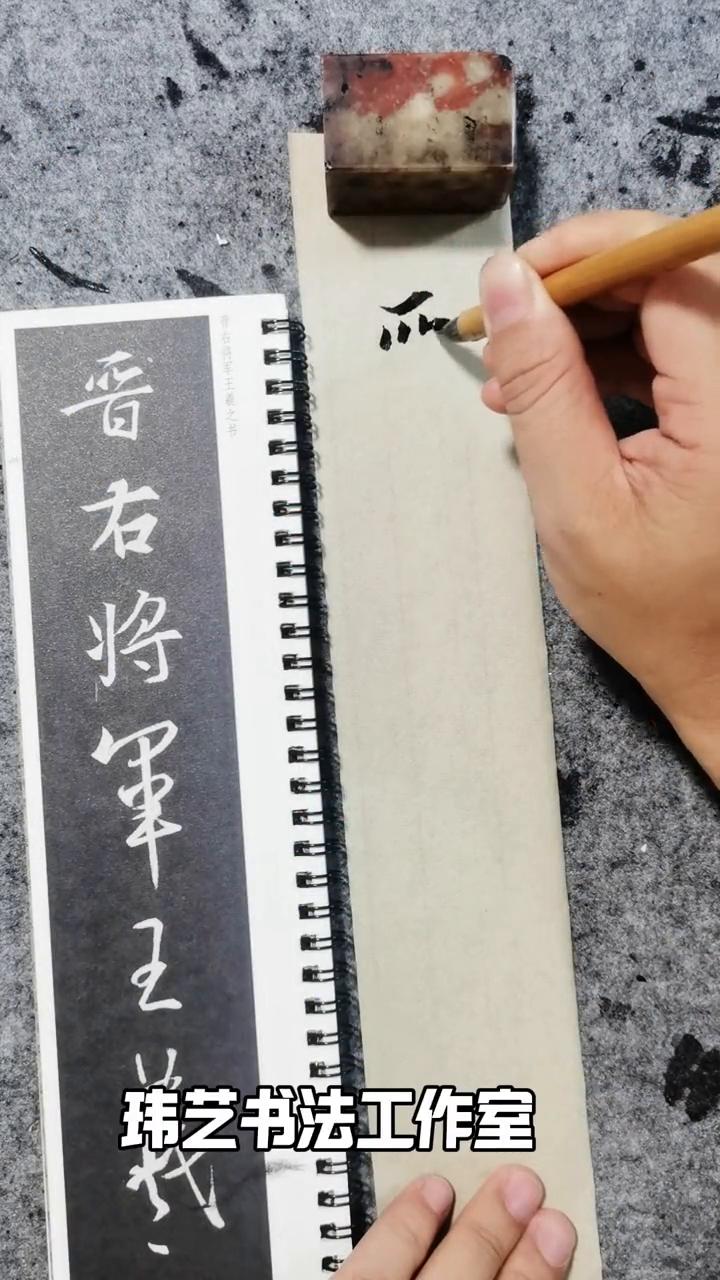 晋右将军王羲之书
晋右將軍王羲
玮艺书法工作室